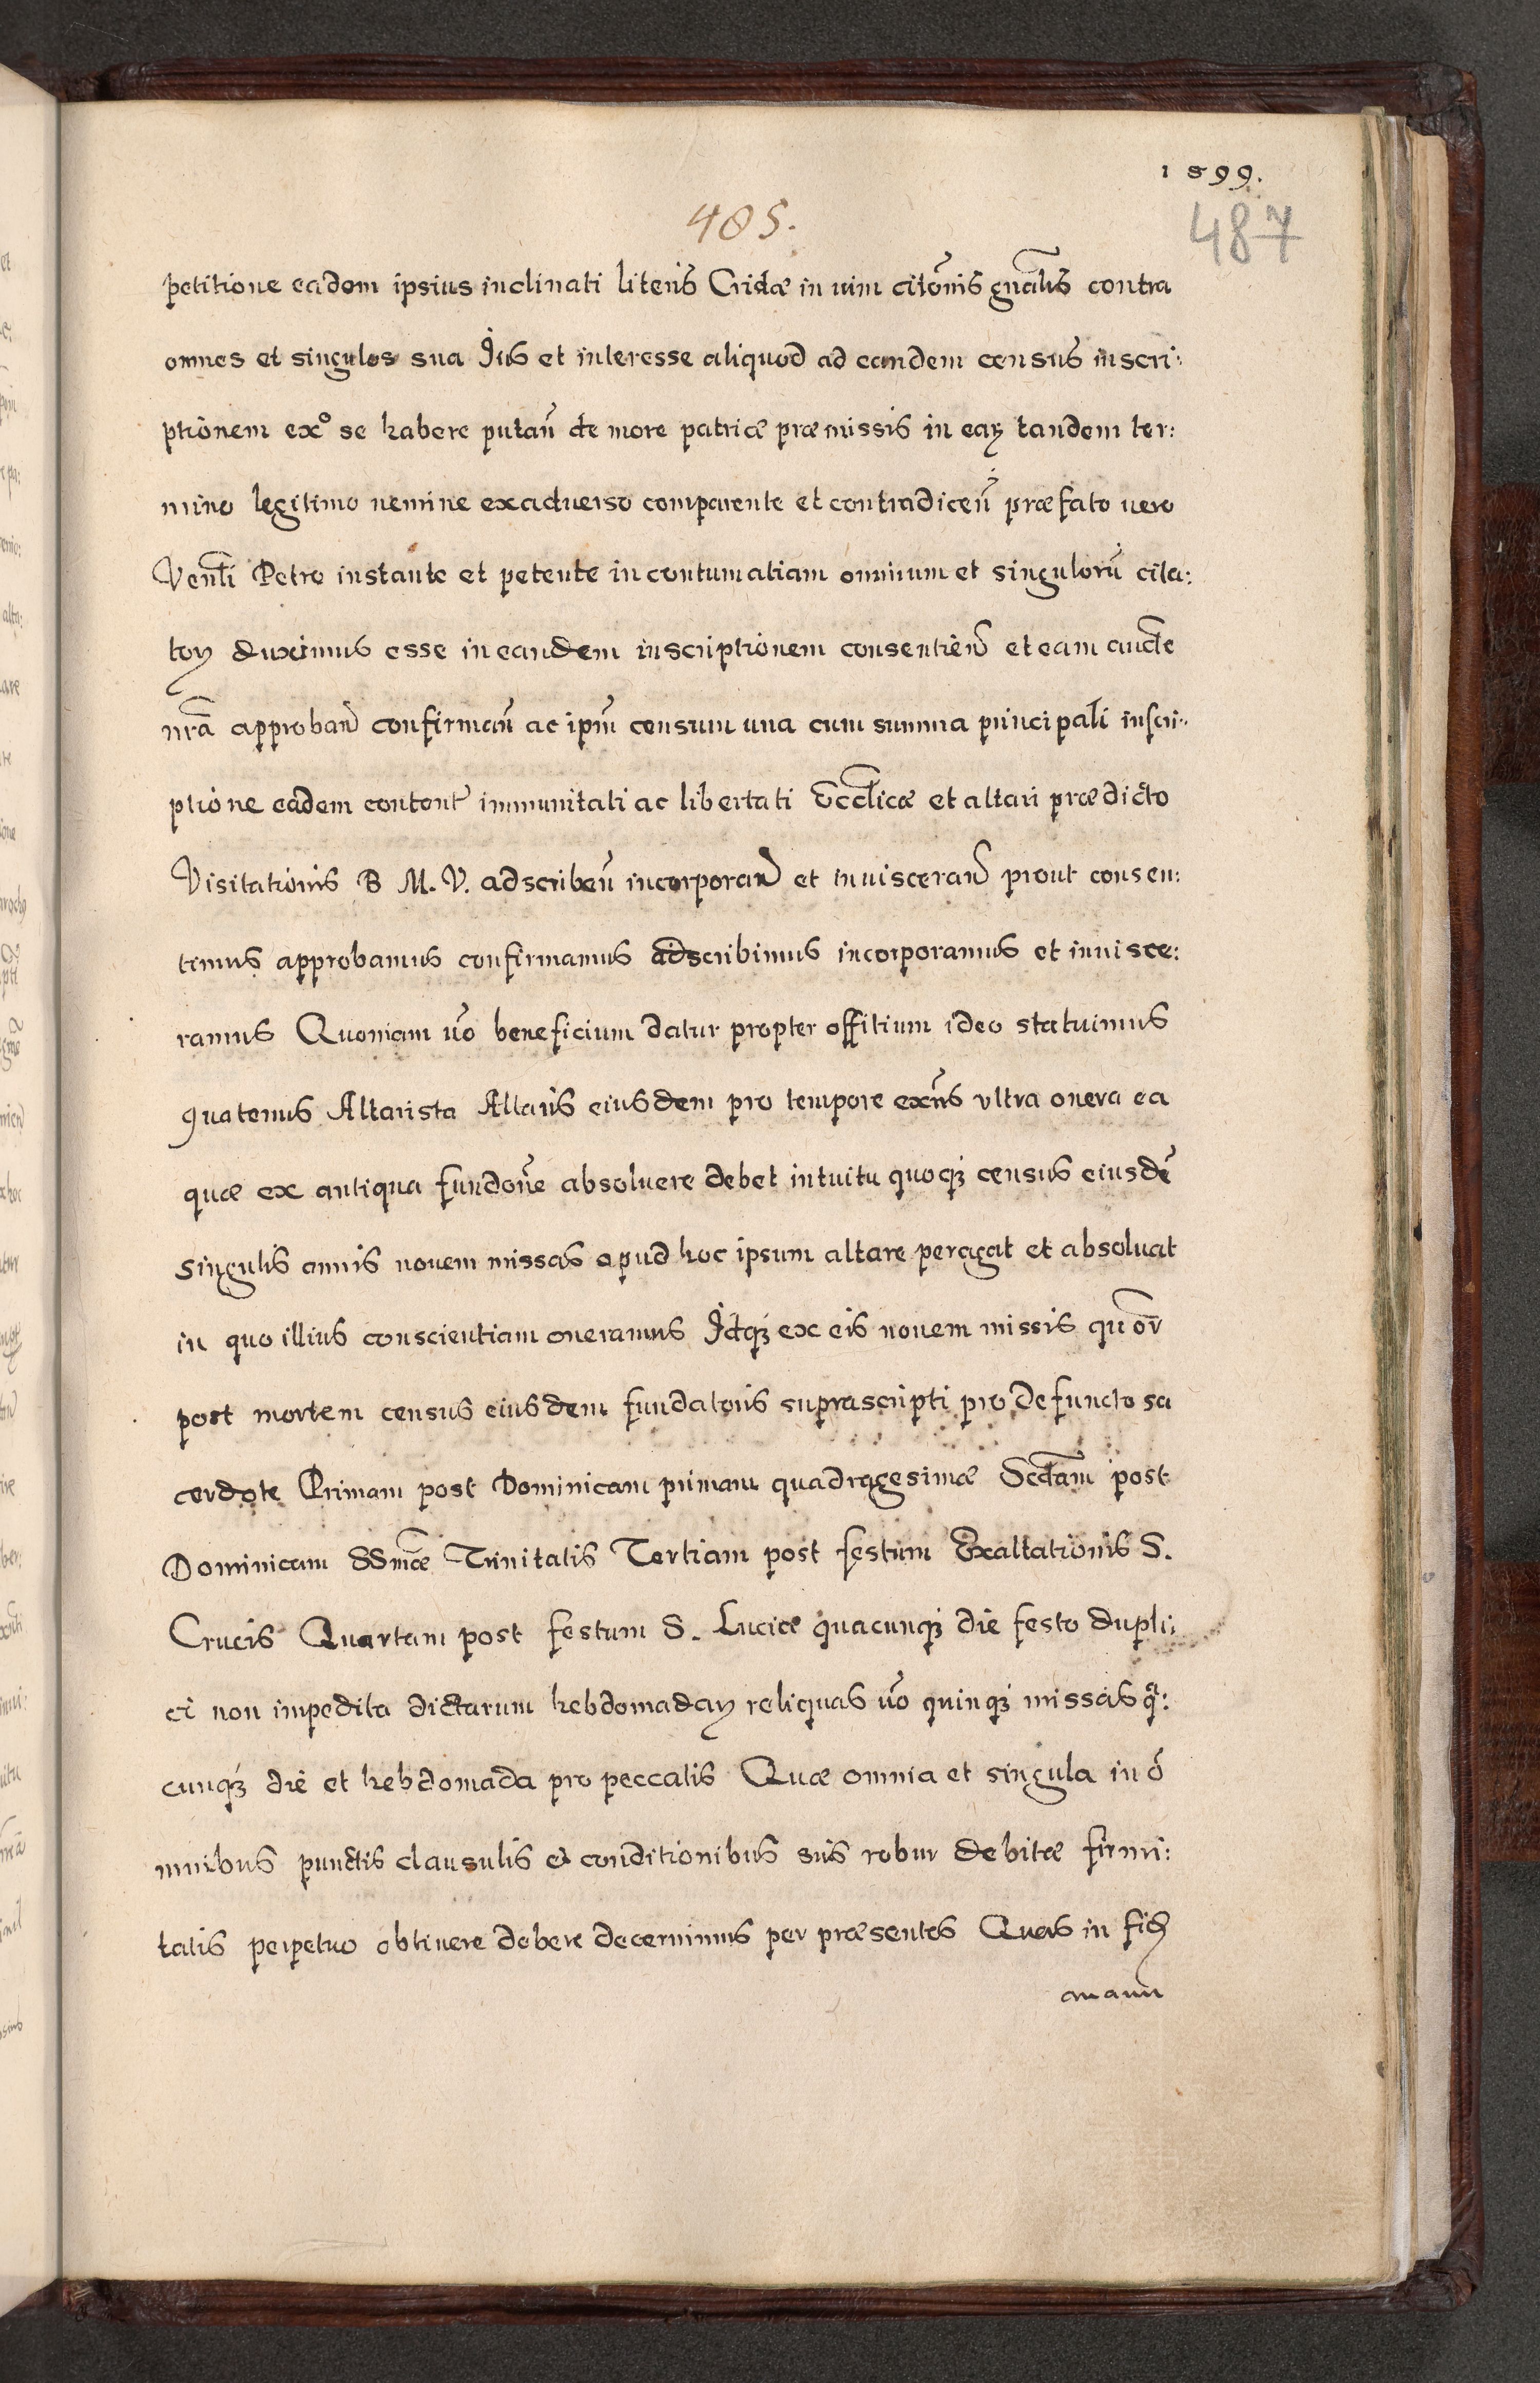 1899.
405.
487
petitione eadem ipsius inclinati literis Cridæ in vim citõnis gnãlis contra
omnes et singulos sua Jus et interesse aliquod ad eandem census inscri:
ptionem exº se habere putañ de more patriæ præmissis in eaꝝ tandem ter:
mino legitimo nemine exadverso comparente et contradiceñ præfato vero
Venlĩ Petro instante et petente in contumatiam omnium et singulorũ cita:
toꝝ duximus esse in eandem inscriptionem consentień et eam aucte
nrã approbań confirmañ ac ipm̃ censum una cum summa principali inscri:
ptione eadem content̃ immunitati ac libertati Eccl̃icæ et altari prædicto
Visitationis B M. V. adscribeñ incorporań et inviscerań prout consen:
timus approbamus confirmamus adscribimus incorporamus et invisce:
ramus Quoniam võ beneficium datur propter offitium ideo statuimus
quatenus Altarista Altaris eiusdem pro tempore exñs ultra onera ea
quæ ex antiqua fundoñe absoluere debet intuitu quoqꝫ census eiusdẽ
singulis annis novem missas apud hoc ipsum altare peragat et absoluat
in quo illius conscientiam oneramus Idqꝫ ex eis novem missis qu̅or
post mortem census eiusdem fundatoris suprascripti pro defuncto sa
cerdote Primam post Dominicam primam quadragesimæ Secd̃am post
Dominicam SSmæ̃ Trinitatis Tertiam post festum Exaltationis S.
Crucis Quartam post festum S. Luciæ quacunqꝫ die festo dupli:
ci non impedita dictarum hebdomadaꝝ reliquas võ quinqꝫ missas q̃:
cunqꝫ die et hebdomada pro peccatis Quæ omnia et singula in õ
mnibus punctis clausulis et conditionibus suis robur debitæ firmi:
tatis perpetuo obtinere debere decernimus per præsentes Quas in fidꝫ
manu